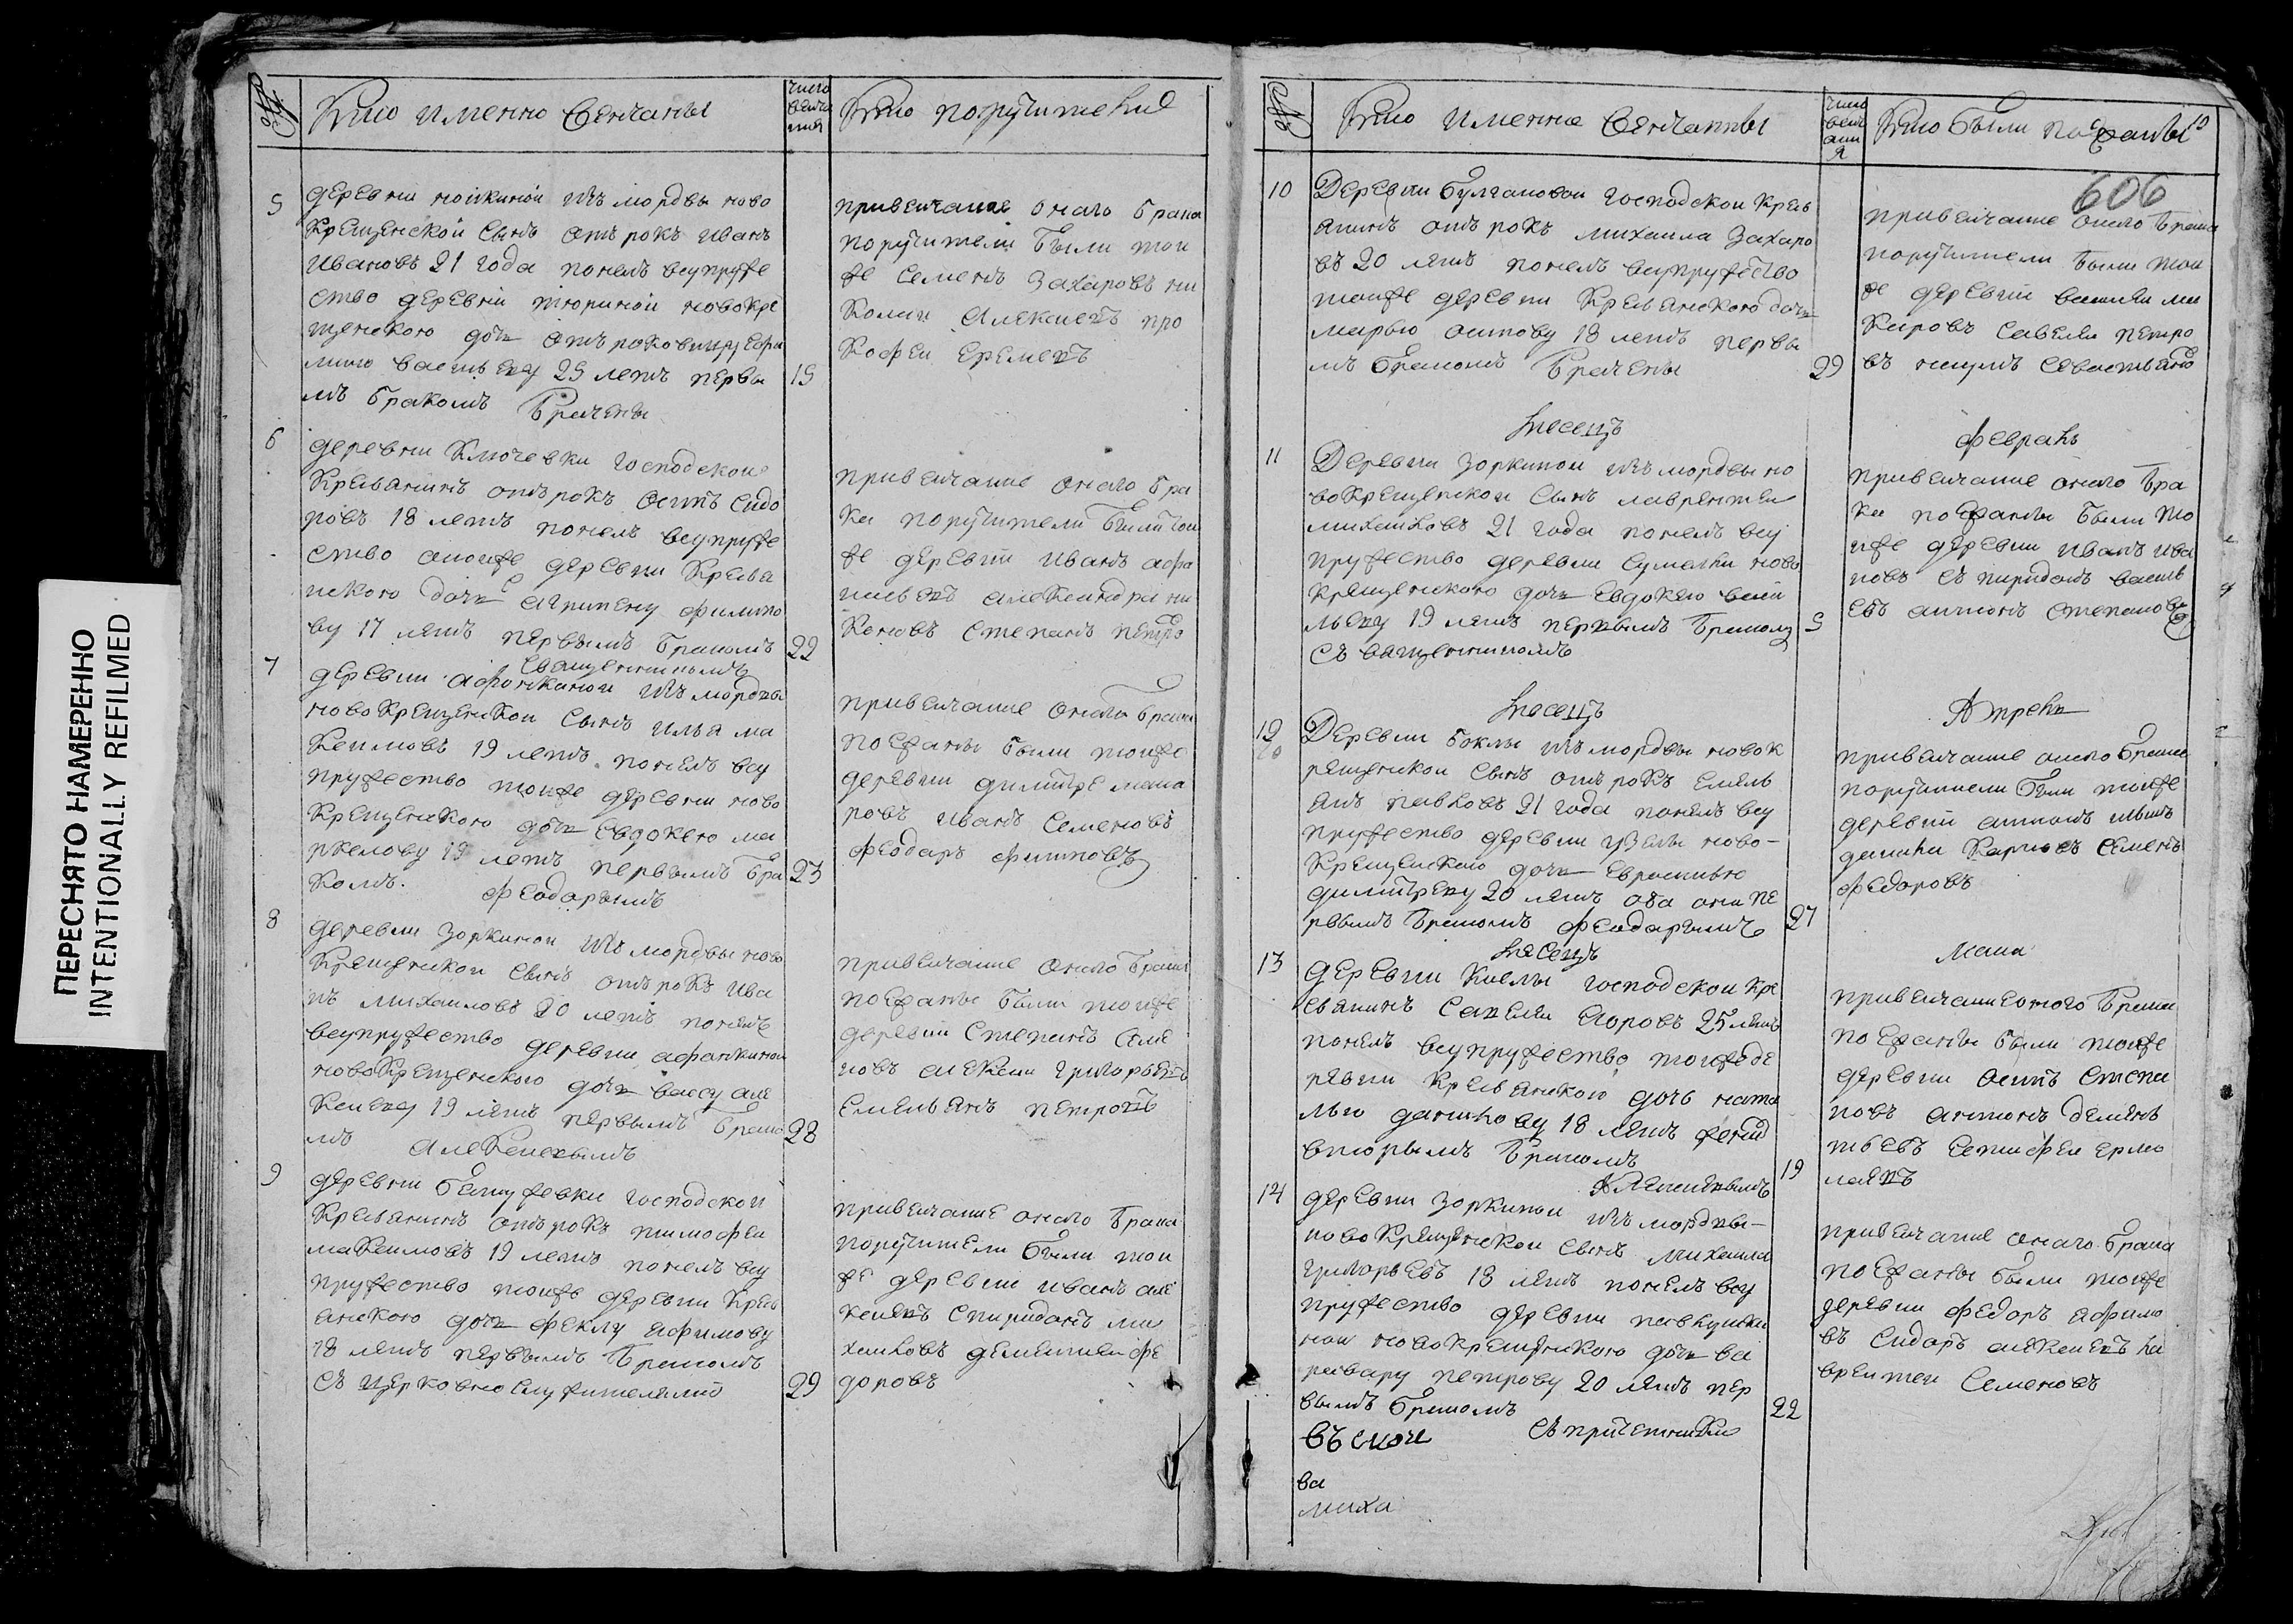 ПЕРЕСНЯТО НАМЕРЕННО
INTENTIONALLY REFILMED
№
Кто именно венчаны
число венча ния
Кто поручителие
5
деревни нойкиной изъ мордвы ново
крещенской сынъ отрокъ иванъ
ивановъ 21 года понелъ всупруже
ство деревни тюриной новокре
щенского дочь отроковицу ефи
мию васильеву 25 летъ первы
мъ бракомъ браченъ
15
привенчание онаго брака
поручители были той
же семенъ захаровъ ни
колай алексеевъ про
кофей еремеевъ
6
деревни Ключевки господской
крестьянинъ отрокъ осипъ сидо
ровъ 18 летъ понелъ всупруже
ство тоейже деревни крестья
нского дочь агрипену филипо
ву 17 летъ первымъ бракомъ
священникомъ
22
привенчание онаго бра
ка поручители были той
же деревни иванъ афо
насьевъ александра ни
коновъ степанъ петро
7
деревни афонкиной изъ мордвы
новокрещенской сынъ илья ма
ксимовъ 19 летъ понелъ всу
пружество тоиже деревни ново
крещенского дочь евдокею ма
ркелову 19 летъ первымъ бра
комъ. феодорымъ
23
привенчание онаго брака
поезжаны были тоиже
деревни димитре мака
ровъ иванъ семеновъ
феодаръ филиповъ
8
деревни зоркиной изъ мордвы ново
крещенской сынъ отрокъ ива
нъ михаиловъ 20 летъ понелъ
всупружество деревни афонкиной
новокрещенского дочь васу але
ксееву 19 летъ первымъ брако
мъ алексеевымъ
28
привенчание онаго брака
поезжаны были тоиже
деревни степанъ семе
новъ алексей григорьевъ
емельянъ петровъ
9
деревни господской
крестьянинъ отрокъ тимофей
максимовъ 19 летъ понелъ всу
пружество тоиже деревни крест
янского дочь феклу ефимову
18 летъ первымъ бракомъ
съ церковнослужителями
29
привенчание онаго брака
поручители были той
же деревни иванъ але
ксеевъ спиридонъ ми
хаиловъ дементей фе
доровъ
№
Кто именна венчанны
число венч ани я
Кто были поезжаны
19
606
10
Деревни булгановой господской крест
янинъ отрокъ михаила захаро
въ 20 летъ понелъ всупружество
тоиже деревни крестьянского дочь
марью осипову 18 летъ первы
мъ бракомъ браченъ
29
привенчание онаго брака
поручители были той
же деревни василей ма
каровъ савелей петро
въ наумъ севастьяно
месецъ
февраль
11
Деревни зоркиной изъ мордвы но
вокрещенской сынъ лаврентей
михаиловъ 21 года понелъ всу
пружество деревни сумачки ново
крещенского дочь евдокею васи
льеву 19 летъ первымъ бракомъ
съ ващенникомъ
5
привенчание онаго бра
ка поезжаны были то
иже деревни иванъ ива
новъ спиридонъ василь
евъ антонъ степановъ
месецъ
Апрель
12
Деревни боклы изъ мордвы новок
рещенской сынъ отрокъ емель
янъ павловъ 21 года понелъ всу
пружество деревни узелы ново-
крещенского дочь евросинью
димитрееву 20 летъ оба они пе
рвымъ бракомъ феодарымъ
27
привенчание онаго брака
поручители были тоиже
деревни антонъ ивано
данила карповъ семенъ
федоровъ
месецъ
маиа
13
деревни киелы господской кре
стьянинъ савелей 25 летъ
понелъ всупружество тоиже де
ревни крестьянского дочь ната
лью данилову 18 летъ женит
вторымъ бракомъ
19
привенчание оного брака
поезжаны были тоиже
деревни осипъ степа
новъ антонъ деменъ
тьевъ естифей ермо
лаевъ
14
Алексеевымъ
деревни зоркиной изъ мордвы-
новокрещенской сынъ михаила
григорьевъ 18 летъ понелъ всу
пружество деревни павлушки
ной новокрещенского дочь ва
рвару петрову 20 летъ пер
вымъ бракомъ
съ причетники
22
привенчание онаго брака
поезжаны были тоиже
деревни федоръ ефимо
въ сидоръ алексеевъ ла
врентей семеновъ
ва
миха